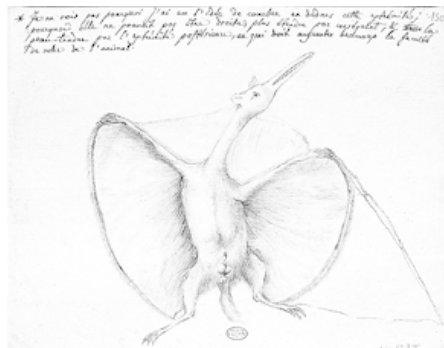 * Je ne vois pas pourquoi j'ai eu l'idée de courber en dedans cette extrémité,
pourquoi elle ne pourroit pas être droite, plus étendue par conséquent, &
peau tendue par l'extrémité postérieure, ce qui doit augmenter beaucoup la faculté
de voler de l'animal.